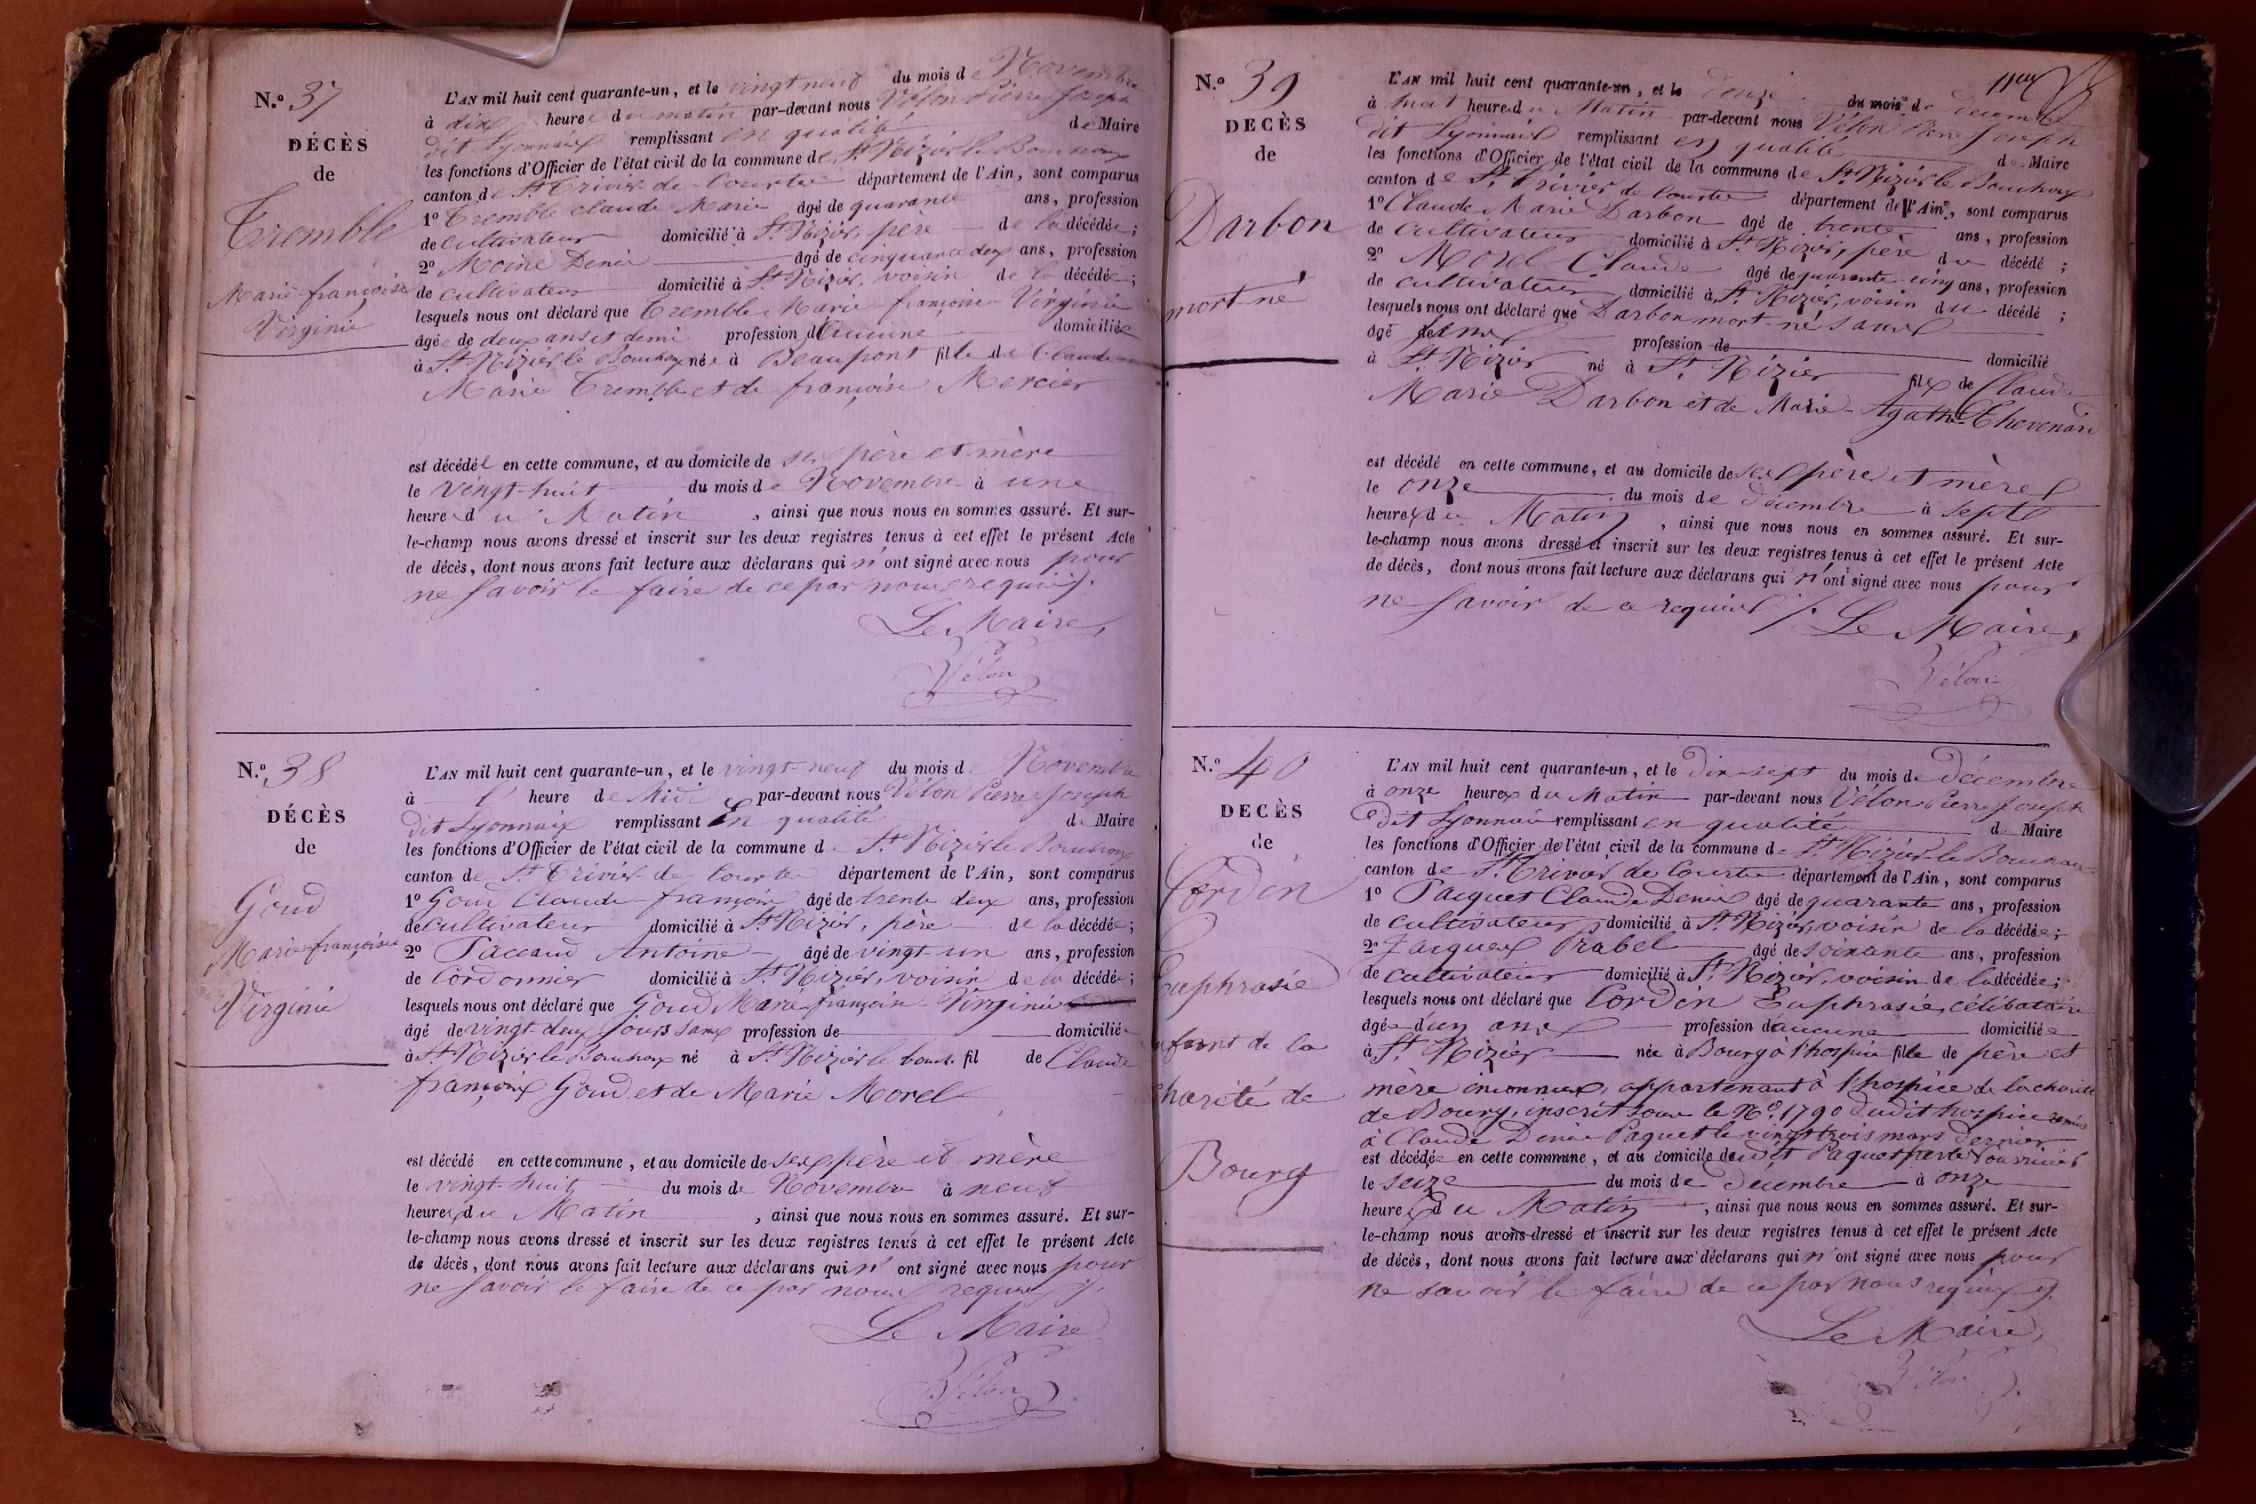 N.º 37
DÉCÈS
de
Tremble
Marie-françoise
Virginie
L'AN mil huit cent quarante-un, et le vingt neuf du mois de Novembre
à dix heures du matin par-devant nous Vélon Pierre Joseph
dit Lyonnais remplissant en qualité de Maire
les fonctions d'Officier de l'état civil de la commune de St Nizier le Bouchoux
canton de St Trivier de Courtes département de l'Ain, sont comparus
1º Tremble Claude Marie âgé de quarante ans, profession
de cultivateur domicilié à St Nizier, père de la décédée;
2º Moine Denis âgé de cinquante deux ans, profession
de cultivateur domicilié à St Nizier, voisin de la décédée;
lesquels nous ont déclaré que Tremble Marie françoise Virginie
âgée de deux ans et demi profession d'aucune domiciliée
à St Nizier le Bouchoux née à Beaupont fille de Claude
Marie Tremble et de françoise Mercier
est décédée en cette commune, et au domicile de ses père et mère
le vingt-huit du mois de Novembre à une
heure du Matin, ainsi que nous nous en sommes assuré. Et sur-
le-champ nous avons dressé et inscrit sur les deux registres tenus à cet effet le présent Acte
de décès, dont nous avons fait lecture aux déclarans qui n'ont signé avec nous pour
ne savoir le faire de ce par nous requis.
Le Maire,
Vélon
N.º 38
DÉCÈS
de
Goud
Marie-françoise
Virginie
L'AN mil huit cent quarante-un, et le vingt-neuf du mois de Novembre
à l' heure de Midi par-devant nous Vélon Pierre Joseph
dit Lyonnais remplissant En qualité de Maire
les fonctions d'Officier de l'état civil de la commune de St Nizier le Bouchoux
canton de St Trivier de Courtes département de l'Ain, sont comparus
1º Goud Claude françois âgé de trente deux ans, profession
de cultivateur domicilié à St Nizier, père de la décédée;
2º Paccaud Antoine âgé de vingt-un ans, profession
de Cordonnier domicilié à St Nizier, voisin de la décédée;
lesquels nous ont déclaré que Goud Marie françoise Virginie
âgé de vingt deux jours sans profession de domiciliée
à St Nizier le Bouchoux né à St Nizier le bouch. fil de Claude
françois Goud et de Marie Morel
est décédé en cette commune, et au domicile de ses père et mère
le vingt-huit du mois de Novembre à neuf
heures du Matin, ainsi que nous nous en sommes assuré. Et sur-
le-champ nous avons dressé et inscrit sur les deux registres tenus à cet effet le présent Acte
de décès, dont nous avons fait lecture aux déclarans qui n'ont signé avec nous pour
ne savoir le faire de ce par nous requis.
Le Maire
Vélon
N.º 39
DECÈS
de
Darbon
mort né
L'AN mil huit cent quarante-un, et le douze du mois de décembre
à huit heures du Matin par-devant nous Vélon Pierre Joseph
dit Lyonnais remplissant en qualité de Maire
les fonctions d'Officier de l'état civil de la commune de St Nizier le Bouchoux
canton de St Trivier de Courtes département de l'Ain, sont comparus
1º Claude Marie Darbon âgé de trente ans, profession
de cultivateur domicilié à St Nizier, père du décédé;
2º Morel Claude âgé de quarante-cinq ans, profession
de cultivateur domicilié à St Nizier, voisin du décédé;
lesquels nous ont déclaré que Darbon mort-né sans
âgé de profession de domicilié
à St Nizier né à St Nizier fils de Claude
Marie Darbon et de Marie-Agathe Thevenard
est décédé en cette commune, et au domicile de ses père et mère
le onze du mois de décembre à sept
heures du Matin, ainsi que nous nous en sommes assuré. Et sur-
le-champ nous avons dressé et inscrit sur les deux registres tenus à cet effet le présent Acte
de décès, dont nous avons fait lecture aux déclarans qui n'ont signé avec nous pour
ne savoir de ce requis. Le Maire,
Vélon
N.º 40
DECÈS
de
Cordon
Euphrasie
enfant de la
charité de
Bourg
L'AN mil huit cent quarante-un, et le dix-sept du mois de décembre
à onze heures du Matin par-devant nous Vélon Pierre Joseph
dit Lyonnais remplissant en qualité de Maire
les fonctions d'Officier de l'état civil de la commune de St Nizier-le-Bouchoux
canton de St Trivier de Courtes département de l'Ain, sont comparus
1º Pacquet Claude Denis âgé de quarante ans, profession
de cultivateur, domicilié à St Nizier, voisin de la décédée;
2º Jacques Prabel âgé de soixante ans, profession
de cultivateur domicilié à St Nizier, voisin de la décédée;
lesquels nous ont déclaré que Cordon Euphrasie, célibataire
âgée d'un ans profession d'aucune domiciliée
à St Nizier née à Bourg à l'hospice fille de père et
mère inconnus, appartenant à l'hospice de la charité
de Bourg, inscrit sous le Nº 1790 dudit hospice remis
à Claude Denis Paquet le vingt trois mars dernier
est décédée en cette commune, et au domicile dudit Paquet père nourricier
le seize du mois de décembre à onze
heures du Matin, ainsi que nous nous en sommes assuré. Et sur-
le-champ nous avons dressé et inscrit sur les deux registres tenus à cet effet le présent Acte
de décès, dont nous avons fait lecture aux déclarans qui n'ont signé avec nous pour
ne savoir le faire de ce par nous requis.
Le Maire,
Vélon